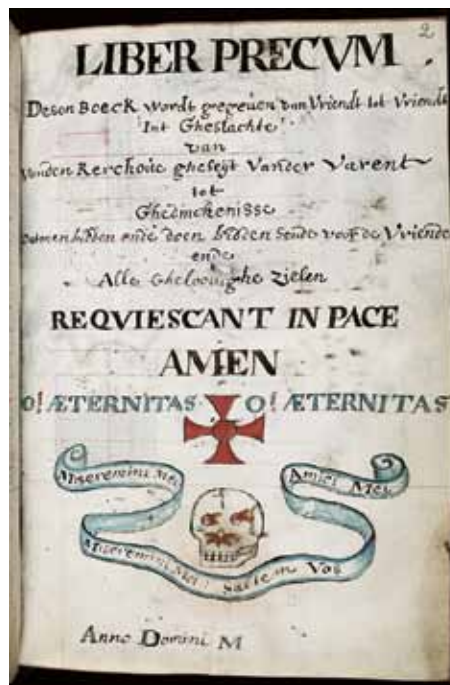 2
LIBER PRECVM
Desen Boeck wordt gegeuen van Vriendt tot Vriendt
Int Gheslachte
van
Vanden Kerchoue gheseyt Vander Varent
tot
Ghedinckenisse
bidden ende doen bidden voor de Vrienden
ende
Alle Gheloouighe zielen
REQVIESCANT IN PACE
AMEN
O! ÆTERNITAS O! ÆTERNITAS
Miseremini Mei
Amici Mei
Miseremini Mei Saltem Vos
Anno Domini M